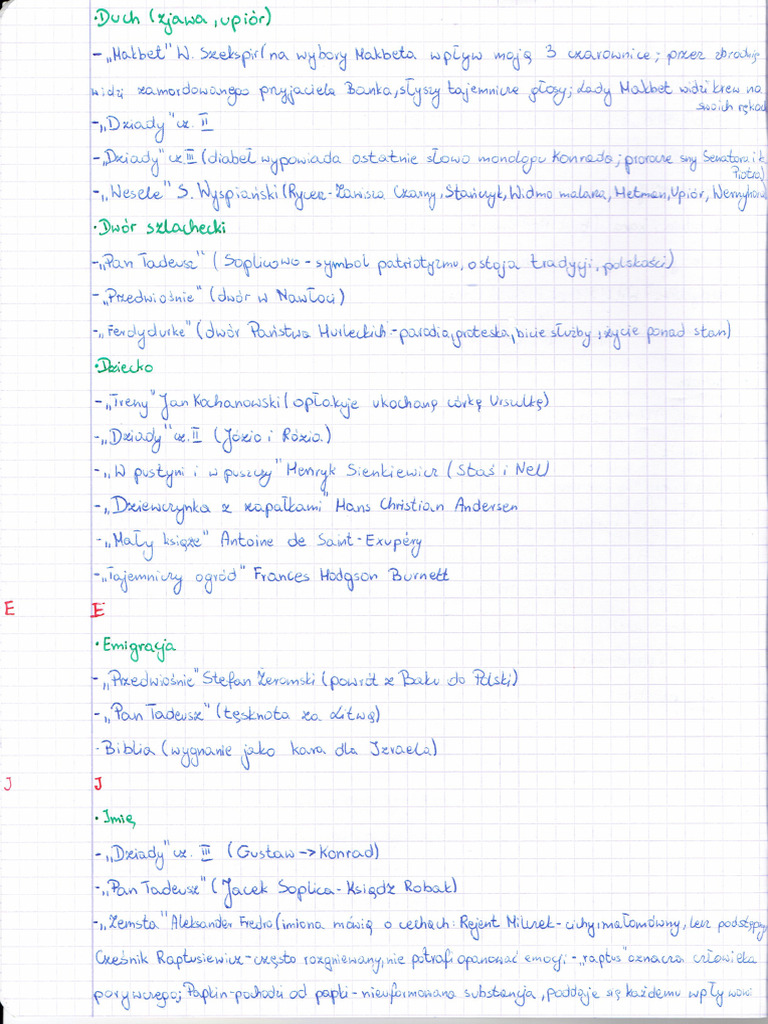 ·Duch (zjawa, upiór)
- „Makbet" W. Szekspir (na wybory Makbeta wpływ mają 3 czarownice; przez zbrodnię
widzi zamordowanego przyjaciela Banka, słyszy tajemnicze głosy; Lady Makbet widzi krew na
swoich rękach
- „Dziady" cz. II
- „Dziady" cz. III (diabeł wypowiada ostatnie słowo monologu Konrada; prorocze sny Senatora i k.
Piotra)
- „Wesele" S. Wyspiański (Rycerz-Zawisza Czarny, Stańczyk, Widmo malarza, Hetman, Upiór, Wernyhora)
·Dwór szlachecki
- „Pan Tadeusz" (Soplicowo - symbol patriotyzmu, ostoja tradycji, polskości)
- „Przedwiośnie" (dwór w Nawłoci)
- „Ferdydurke" (dwór Państwa Hurleckich - parodia, groteska, bicie służby, życie ponad stan)
·Dziecko
- „Treny" Jan Kochanowski (opłakuje ukochaną córkę Urszulkę)
- „Dziady" cz. II (Józio i Rózia)
- „W pustyni i w puszczy" Henryk Sienkiewicz (Staś i Nel)
- „Dziewczynka z zapałkami" Hans Christian Andersen
- „Mały książe" Antoine de Saint-Exupéry
- „Tajemniczy ogród" Frances Hodgson Burnett
E E
·Emigracja
- „Przedwiośnie" Stefan Żeromski (powrót z Baku do Polski)
- „Pan Tadeusz" (tęsknota za Litwą)
- Biblia (wygnanie jako kara dla Izraela)
J J
·Imię
- „Dziady" cz. III (Gustaw -> Konrad)
- „Pan Tadeusz" (Jacek Soplica - Ksiądz Robak)
- „Zemsta" Aleksander Fredro (imiona mówią o cechach: Rejent Milczek - cichy, małomówny, lecz podstępny,
Cześnik Raptusiewicz - często rozgniewany, nie potrafi opanować emocji - „raptus" oznacza człowieka
porywczego; Papkin - pochodzi od papki - nieuformowana substancja, poddaje się każdemu wpływowi